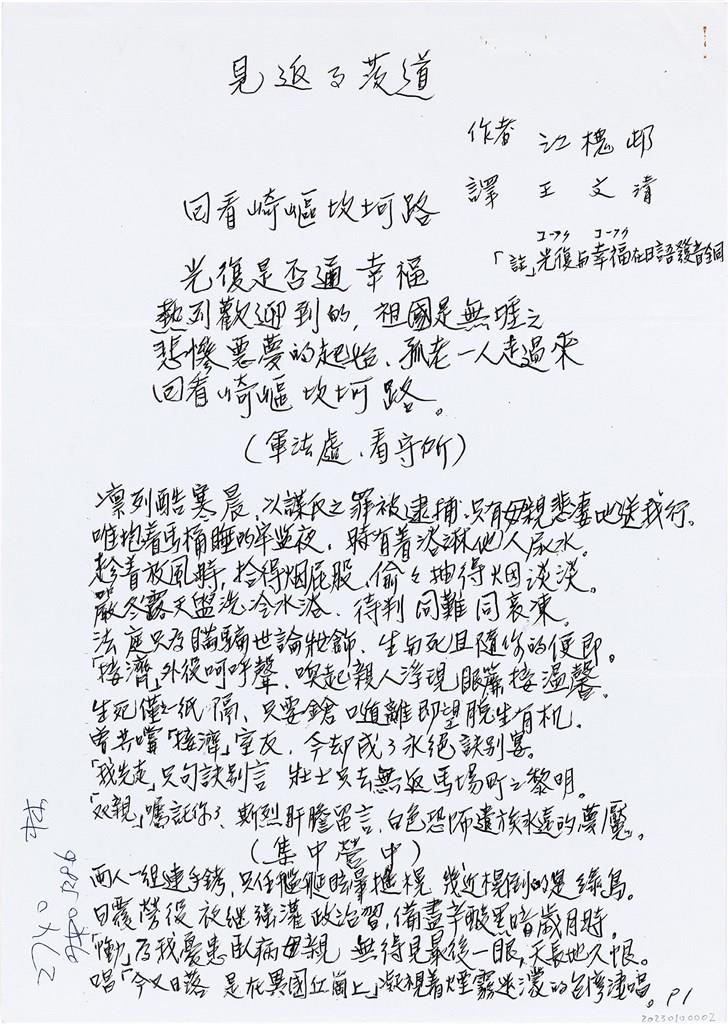 見返る茨道
作者 江槐邨
譯 王文清
回看崎嶇坎坷路
コーフク コーフク
「註」光復与幸福在日語發音全同
光復是否通幸福
熱列歡迎到的，祖國是無唯之
悲慘惡夢的起始、孤老一人走過來
回看崎嶇坎坷路。
（軍法處、看守所）
凛列酷寒晨、以謀民之罪被逮捕、只有母親悲妻地送我行。
唯抱着馬桶睡的牢監夜、時有着浴淋他人尿水。
趁着放風時，拾得烟屁股，偷々抽得烟淡淡。
嚴冬露天盥洗冷水浴、待判同難同哀凍。
法庭只為瞞騙世論粧飾、生与死且隨你的便即。
「接濟」外役呵呼聲、喚起親人浮現眼簾接溫馨。
生死僅一紙隔、只要鎗口遁離即望脫生有机。
曾共嚐「接濟」室友，今却成了永絕訣別宴。
「我先走」只句訣別言 壯士只去無返馬場町之黎明。
「双親」囑託你了、斯烈肝膽留言、白色恐怖遺族永遠的夢魘。
（集中營中）
兩人一組連手銬，只任艦艇暗暈搖榥 幾近榥倒的是綠島。
日覆勞役夜继強灌政治習，備盡辛酸黑暗歲月時。
「慟」為我憂患臥病母親 無得見最後一眼，天長地久恨。
唱「今又日落 是在異國丘崗上」凝視着煙霧迷濛的台灣連唱。
P1
20230100002